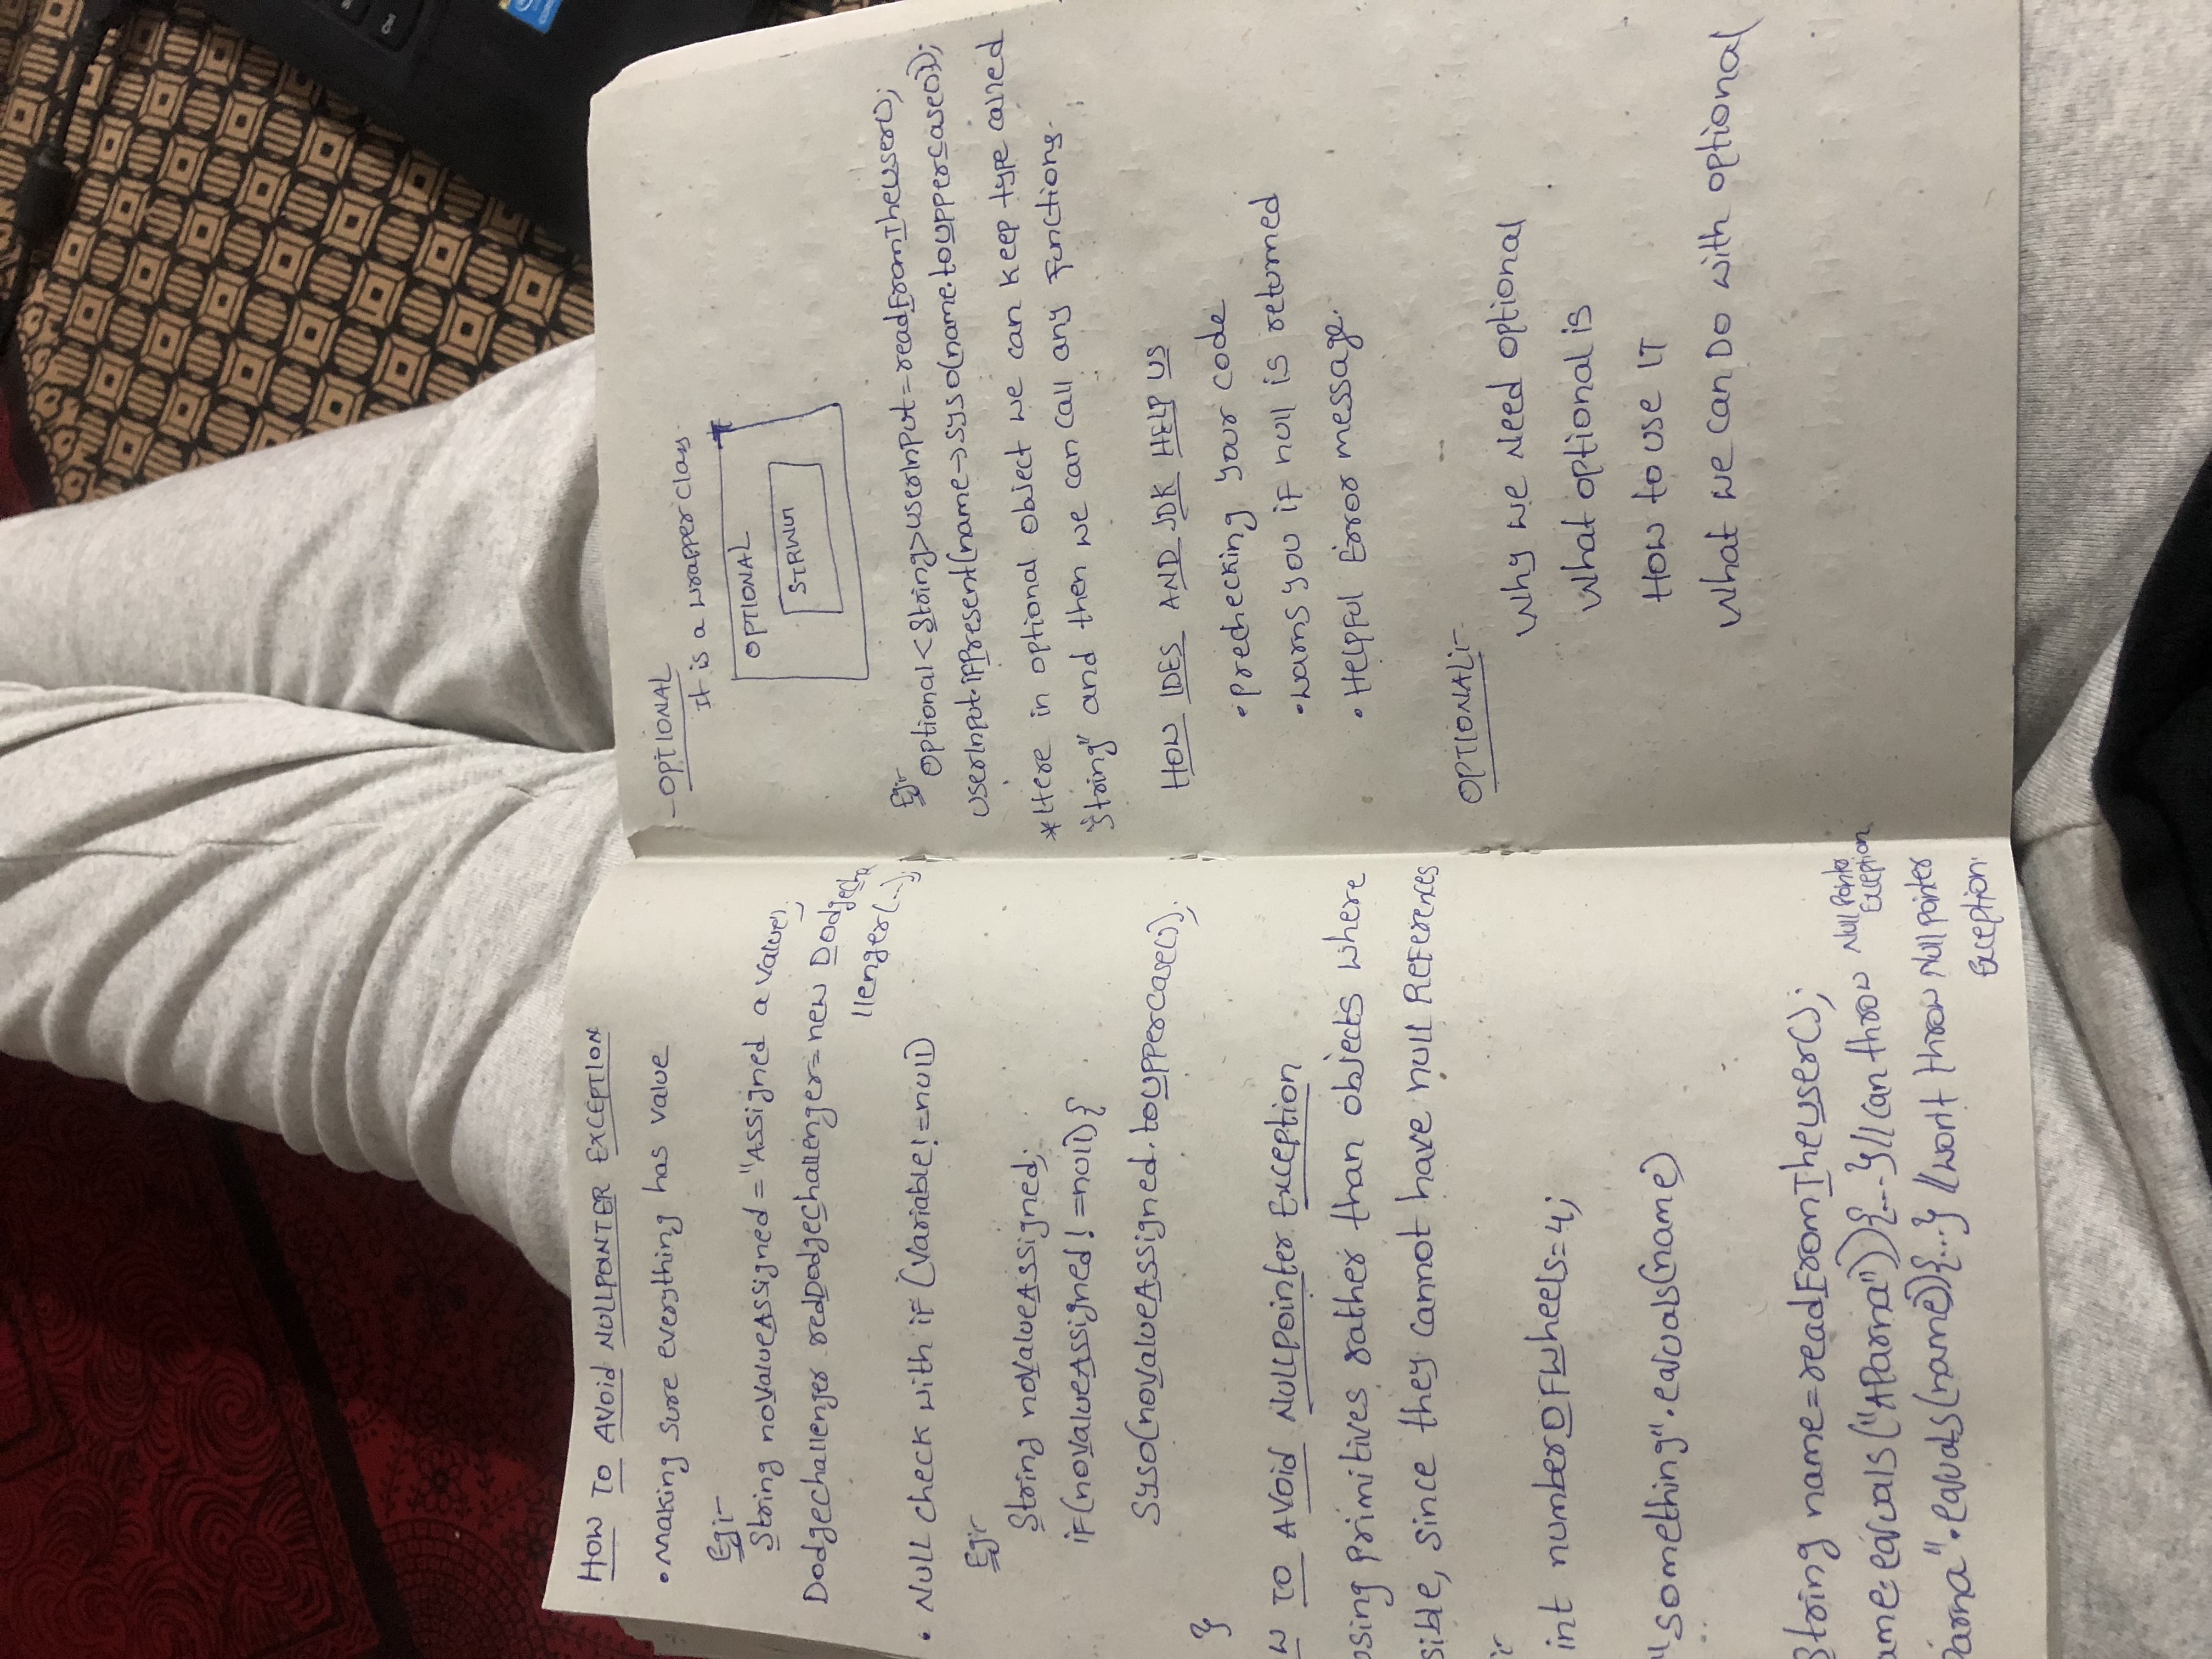 HOW TO AVOid NULLPOINTER EXCEPTION
• Making sure everything has value
Eg:-
String noValueAssigned = "Assigned a value";
Dodgechallenger redDodgeChallenger= new Dodgecha
llenger(...);
• Null check with if (Variable!=null)
Eg:-
String noValueAssigned;
if(noValueAssigned! =null){
Syso(noValueAssigned.toUpperCase());
}
W TO AVOid Nullpointer Exception
osing primitives rather than objects where
sible, since they cannot have null References
:-
int numberOfWheels=4;
"something".equals(name)
String name=readFromTheUser();
ame.equals("Aparna")){...}//can throw Null Pointer
Exception
parna".equals(name)){...} //won't throw Null pointer
Exception.
- OPTIONAL
It is a wrapper class.
OPTIONAL
STRING
Eg:-
Optional<String>userInput=readFromTheUser();
userInput.ifPresent(name->syso(name.toUpperCase()));
*Here in optional object we can keep type called
"String" and then we can call any functions.
HOW IDES AND JDK HELP US
• prechecking your code
• warns you if null is returned
• Helpful Error message.
OPTIONAL:-
Why we Need optional
What optional is
How to use IT
What we can Do with optional
Ctrl